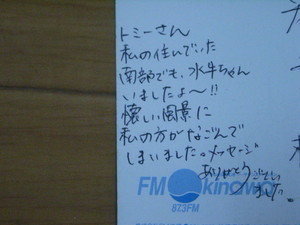 トミーさん
私の住んでいた
南部でも、水牛ちゃん
いましたよ〜!!
懐しい風景に
私の方がなごんで
しまいました。メッセージ
ありがとうございました。
FM Okinawa
87.3FM